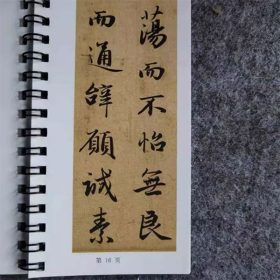 蕩而不怡無良
而通辭願誠素
第 16 页